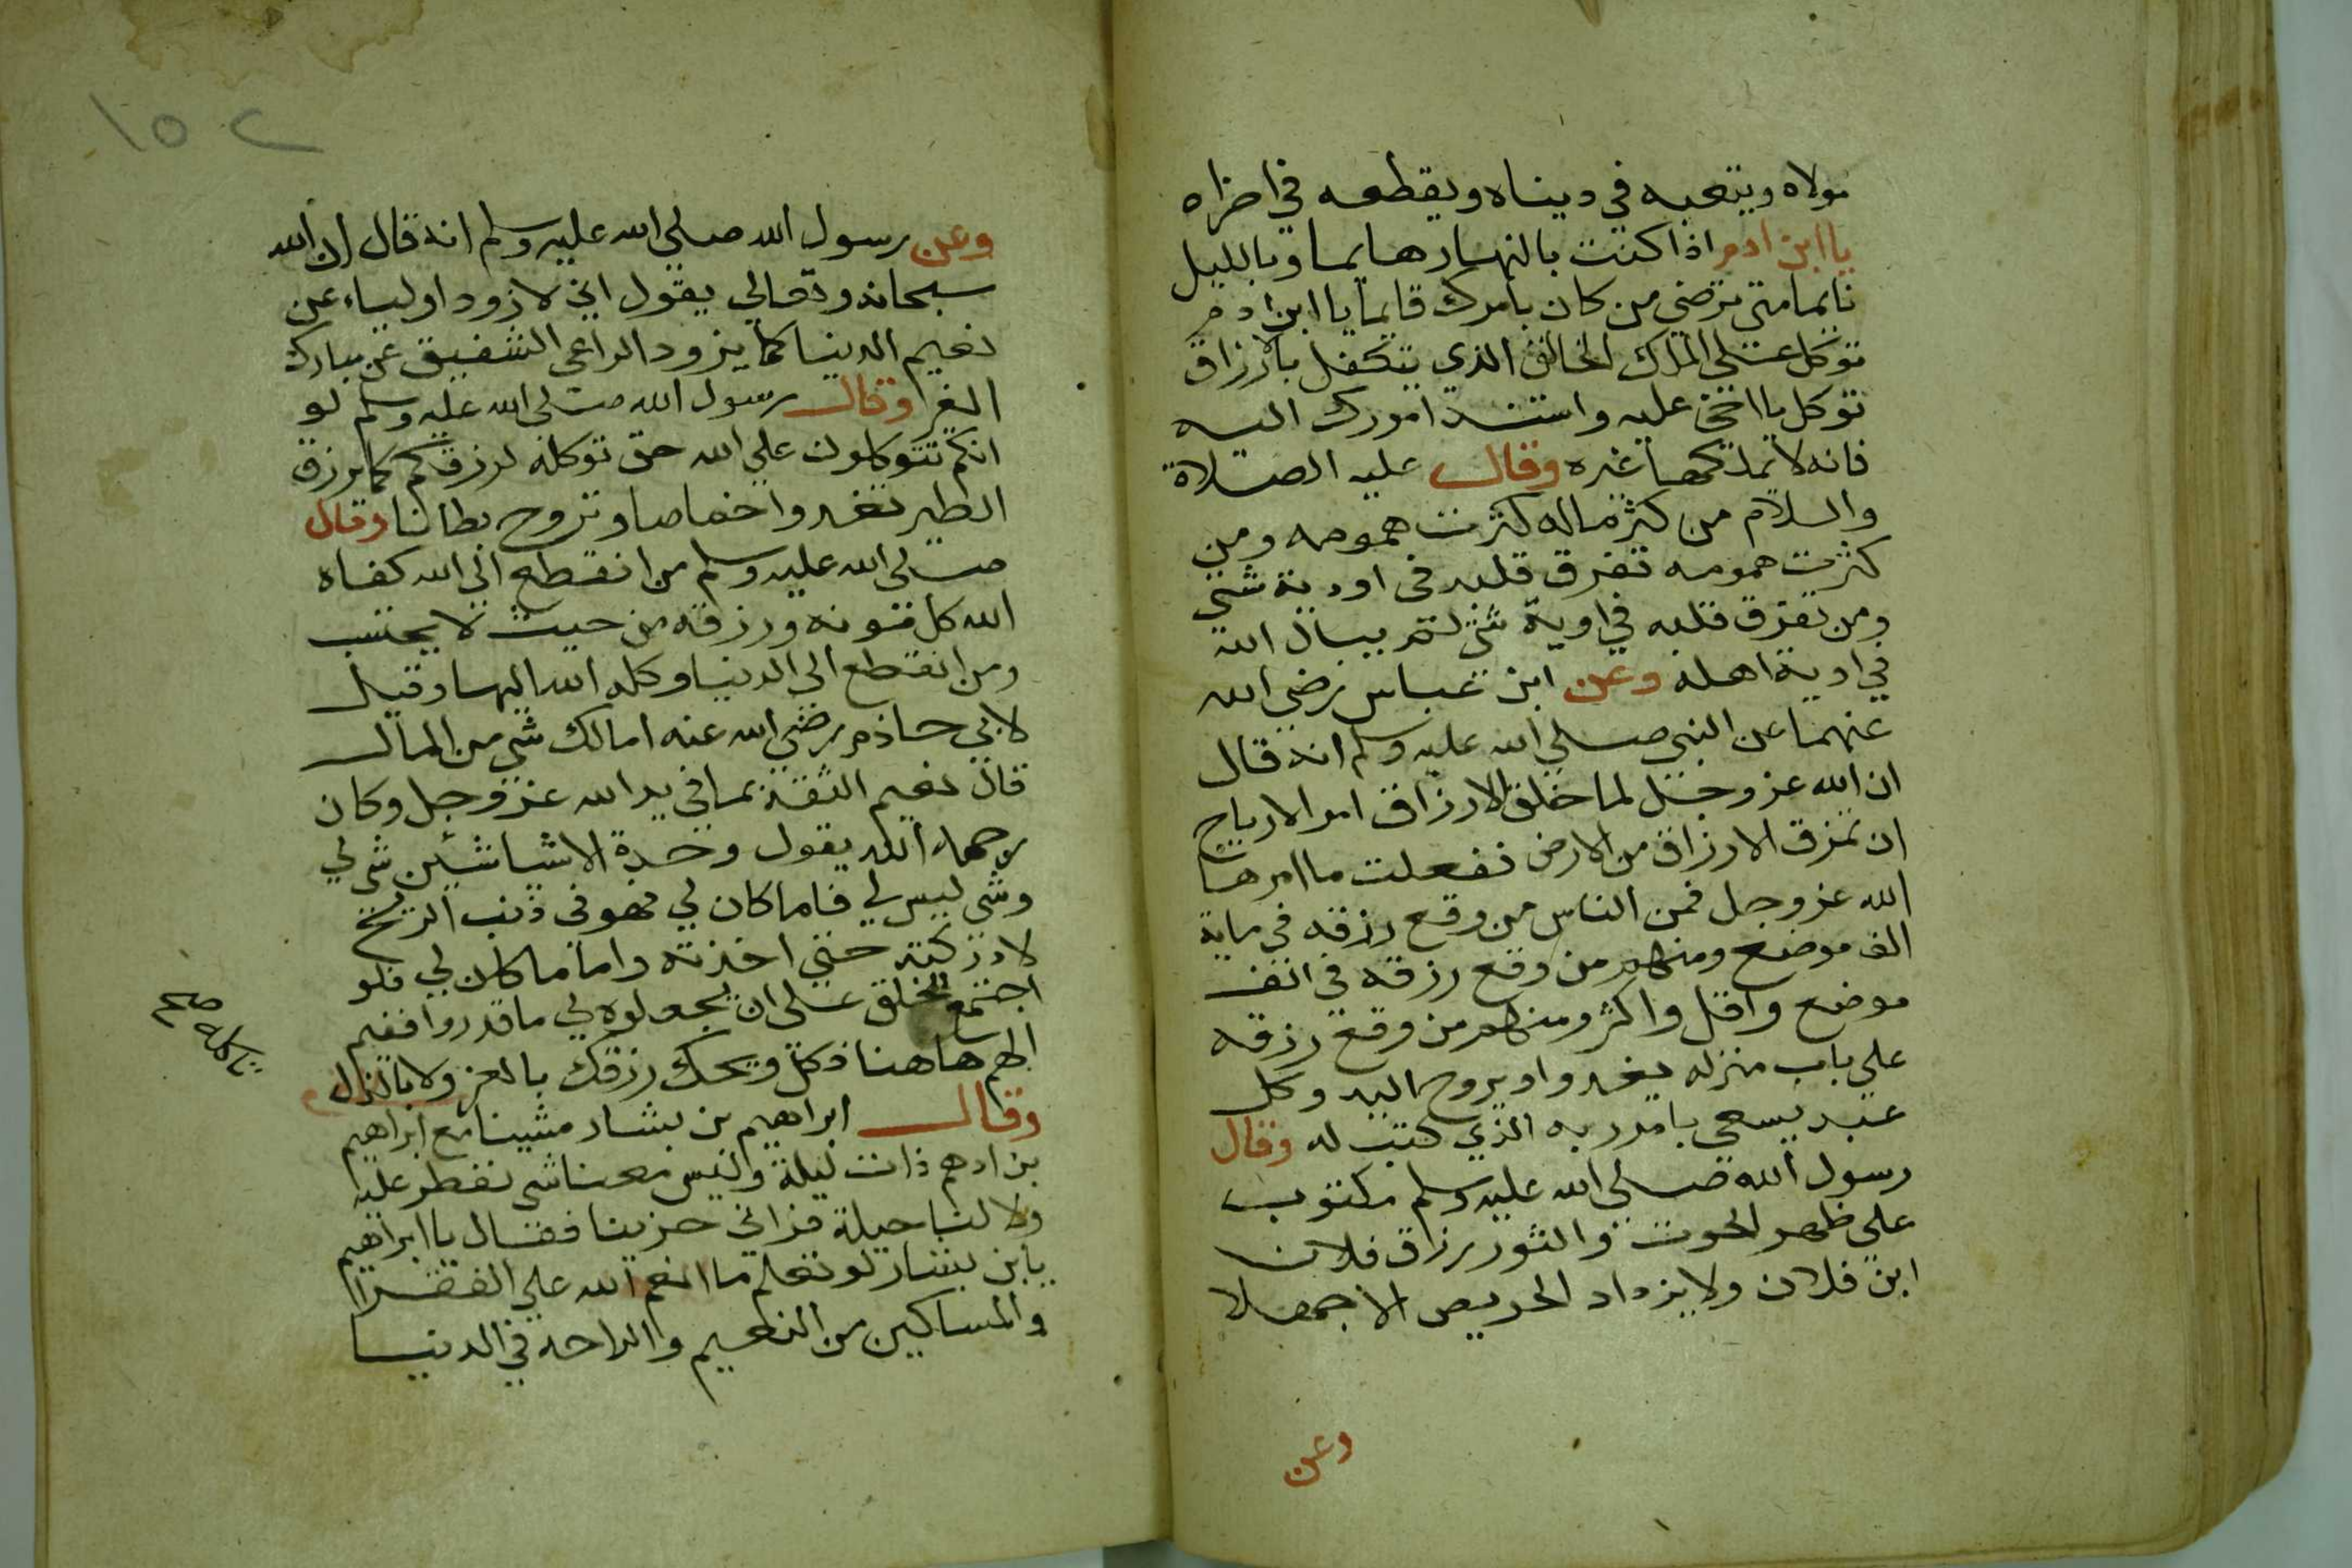 مولاه ويتعبه في ديناه ويقطعه في اخراه
يا ابن ادم اذا كنت بالنهار هايما وبالليل
نايما متى ترضي من كان بامرك قايما يا ابن ادم
توكل على الملك الخالق الذي يتكفل بالارزاق
توكل يا اخي عليه واستند امورك اليه
فانه لا يملكها غيره وقال عليه الصلاة
والسلام من كثر ماله كثرت همومه ومن
كثرت همومه تفرق قلبه في اودية شتى
ومن تفرق قلبه في اوية شتى لم يبال الله
في اودية اهله وعن ابن عباس رضي الله
عنهما عن النبي صلي الله عليه وسلم انه قال
ان الله عز وجل لما خلق الارزاق امر الارياح
ان تمزق الارزاق من الارض ففعلت ما امرها
الله عز وجل فمن الناس من وقع رزقه في ماية
الف موضع ومنهم من وقع رزقه في الف
موضع واقل واكثر ومنهم من وقع رزقه
علي باب منزله يغدوا ويروح اليه وكل
عبد يسعي بامر ربه الذي كتب له وقال
رسول الله صلى الله عليه وسلم مكتوب
على ظهر الحوت والثور رزاق فلان
ابن فلان ولا يزداد الحريص الا جهلا
وعن
١٥٢
وعن رسول الله صلى الله عليه وسلم انه قال ان الله
سبحانه وتعالي يقول اني لازود اولياء عن
نعيم الدنيا كما يزود الراعي الشفيق عن مبارك
الغرا وقال رسول الله صلى الله عليه وسلم لو
انكم تتوكلون علي الله حق توكله لرزقكم كما يرزق
الطير تغدوا خماصا وتروح بطانا وقال
صلى الله عليه وسلم من انقطع الى الله كفاه
الله كل مونه ورزقه من حيث لا يحتسب
ومن انقطع الي الدنيا وكله الله اليها وقيل
لابي حازم رضي الله عنه امالك شي من المال
قال نعيم الثقة بما في يد الله عز وجل وكان
رحمه الله يقول وحدة الاشيا شيئين شي لي
وشي ليس لي فاما كان لي فهو في ذنب الريح
لادركته حتى اخذته واما ما كان لي فلو
اجتمع الخلق على ان يجعلوه لي ما قدروا ففيم
الهم هاهنا فكل ويحك رزقك بالعز ولا بالذل
تاكله صح
وقال ابراهيم بن بشار مشينا مع ابراهيم
بن ادهم ذات ليلة وليس معنا شي نفطر عليه
ولا لنا حيلة فراني حزينا فقال يا ابراهيم
يابن بشار لو تعلم ما انعم الله علي الفقرا
والمساكين من النعيم والراحة في الدنيا